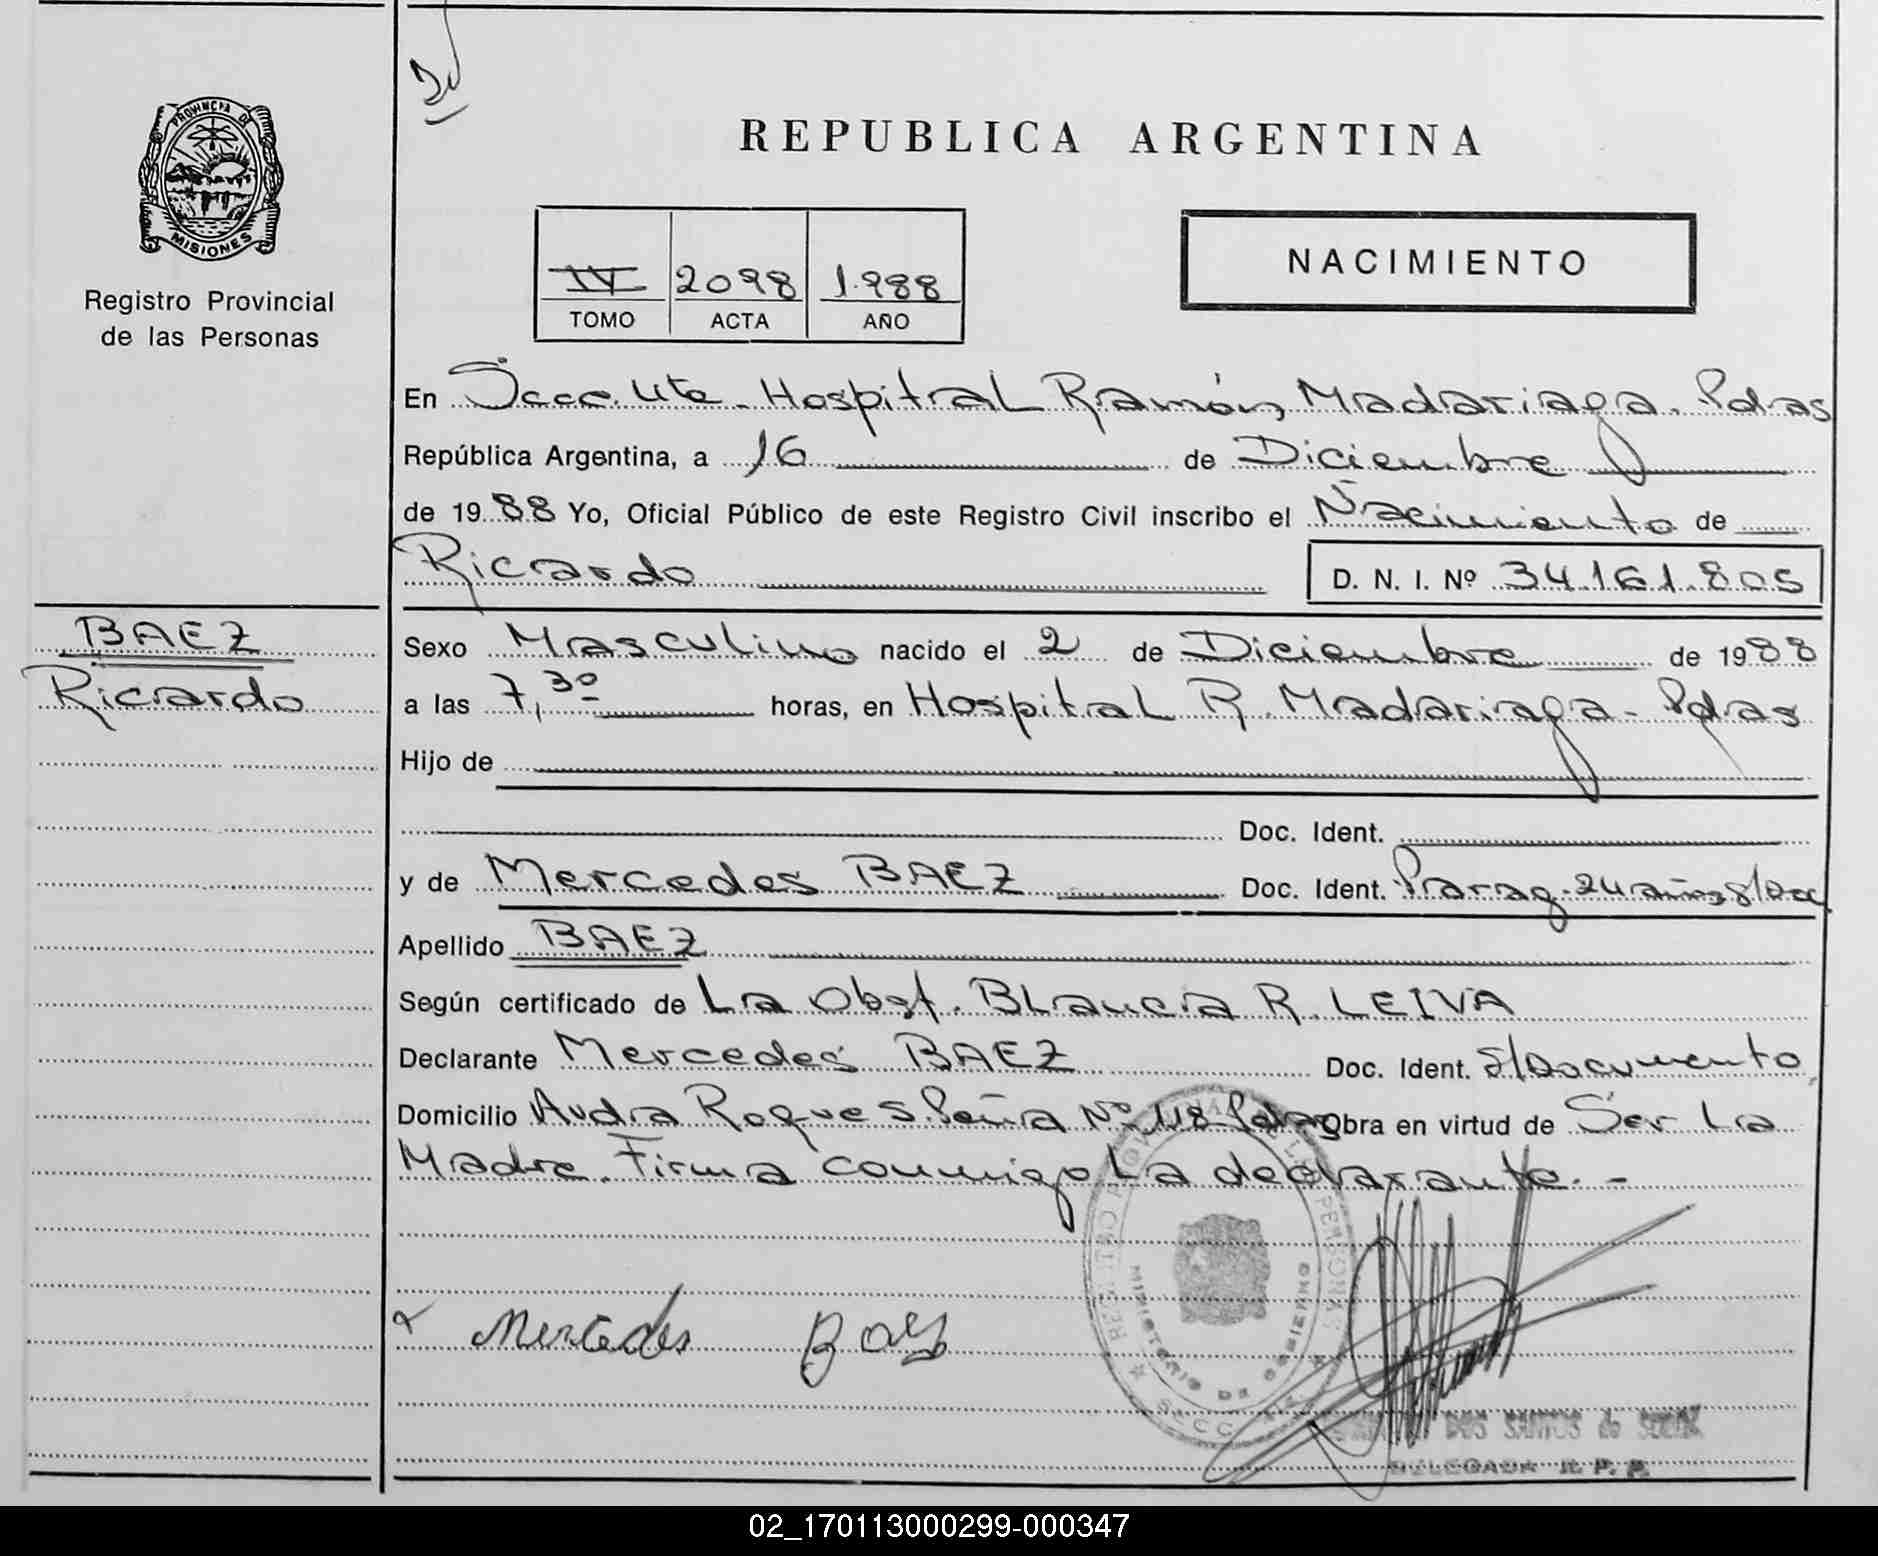 PROVINCIA DE
MISIONES
Registro Provincial
de las Personas
REPUBLICA ARGENTINA
NACIMIENTO
IV 2098 1.988
TOMO ACTA AÑO
En Secc. 4ta - Hospital Ramón Madariaga. Pdas
República Argentina, a 16 de Diciembre
de 1988 Yo, Oficial Público de este Registro Civil inscribo el Nacimiento de
Ricardo D. N. I. Nº 34.161.805
BAEZ
Ricardo
Sexo Masculino nacido el 2 de Diciembre de 1988
a las 7,30 horas, en Hospital R. Madariaga - Pdas
Hijo de
Doc. Ident.
y de Mercedes BAEZ Doc. Ident. Parag. 24 años S/Doc
Apellido BAEZ
Según certificado de La Obst. Blanca R. LEIVA
Declarante Mercedes BAEZ Doc. Ident. S/Documento
Domicilio Avda Roque S. Peña Nº 118 Pdas Obra en virtud de Ser La
Madre. Firma conmigo La declarante. -
Mercedes Baez
REGISTRO PROVINCIAL DE LAS PERSONAS
MINISTERIO DE GOBIERNO
SECC
DOS SANTOS de
DELEGADA R. P. P.
02_170113000299-000347